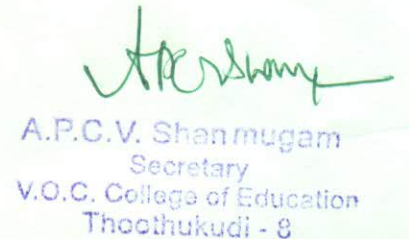 A.P.C.V. Shanmugam
Secretary
V.O.C. College of Education
Thoothukudi - 8